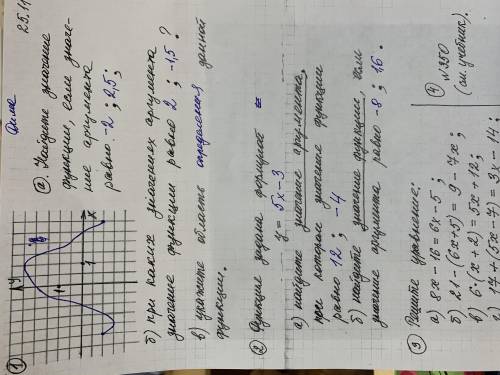 25.11
Дима
① а). Найдите значение
функции, если значе-
ние аргумента
равно -2 ; 2,5 ;
y
x
1
1
б) при каких значениях аргумента
значение функции равно 2 ; -1,5 ?
в) укажите область определения данной
функции.
② Функция задана формулой
y = 5x - 3
а) найдите значение аргумента,
при котором значение функции
равно 12 ; -4
б) найдите значение функции, если
значение аргумента равно -8 ; 1,6.
③ Решите уравнение:
а) 8x - 16 = 6x - 5 ;
б) 21 - (6x + 5) = 9 - 7x ;
в) 6·(x + 2) = 5x + 12 ;
г) 17 - (5x - 7) = 3x - 14 ;
④ №350
(см. учебник).